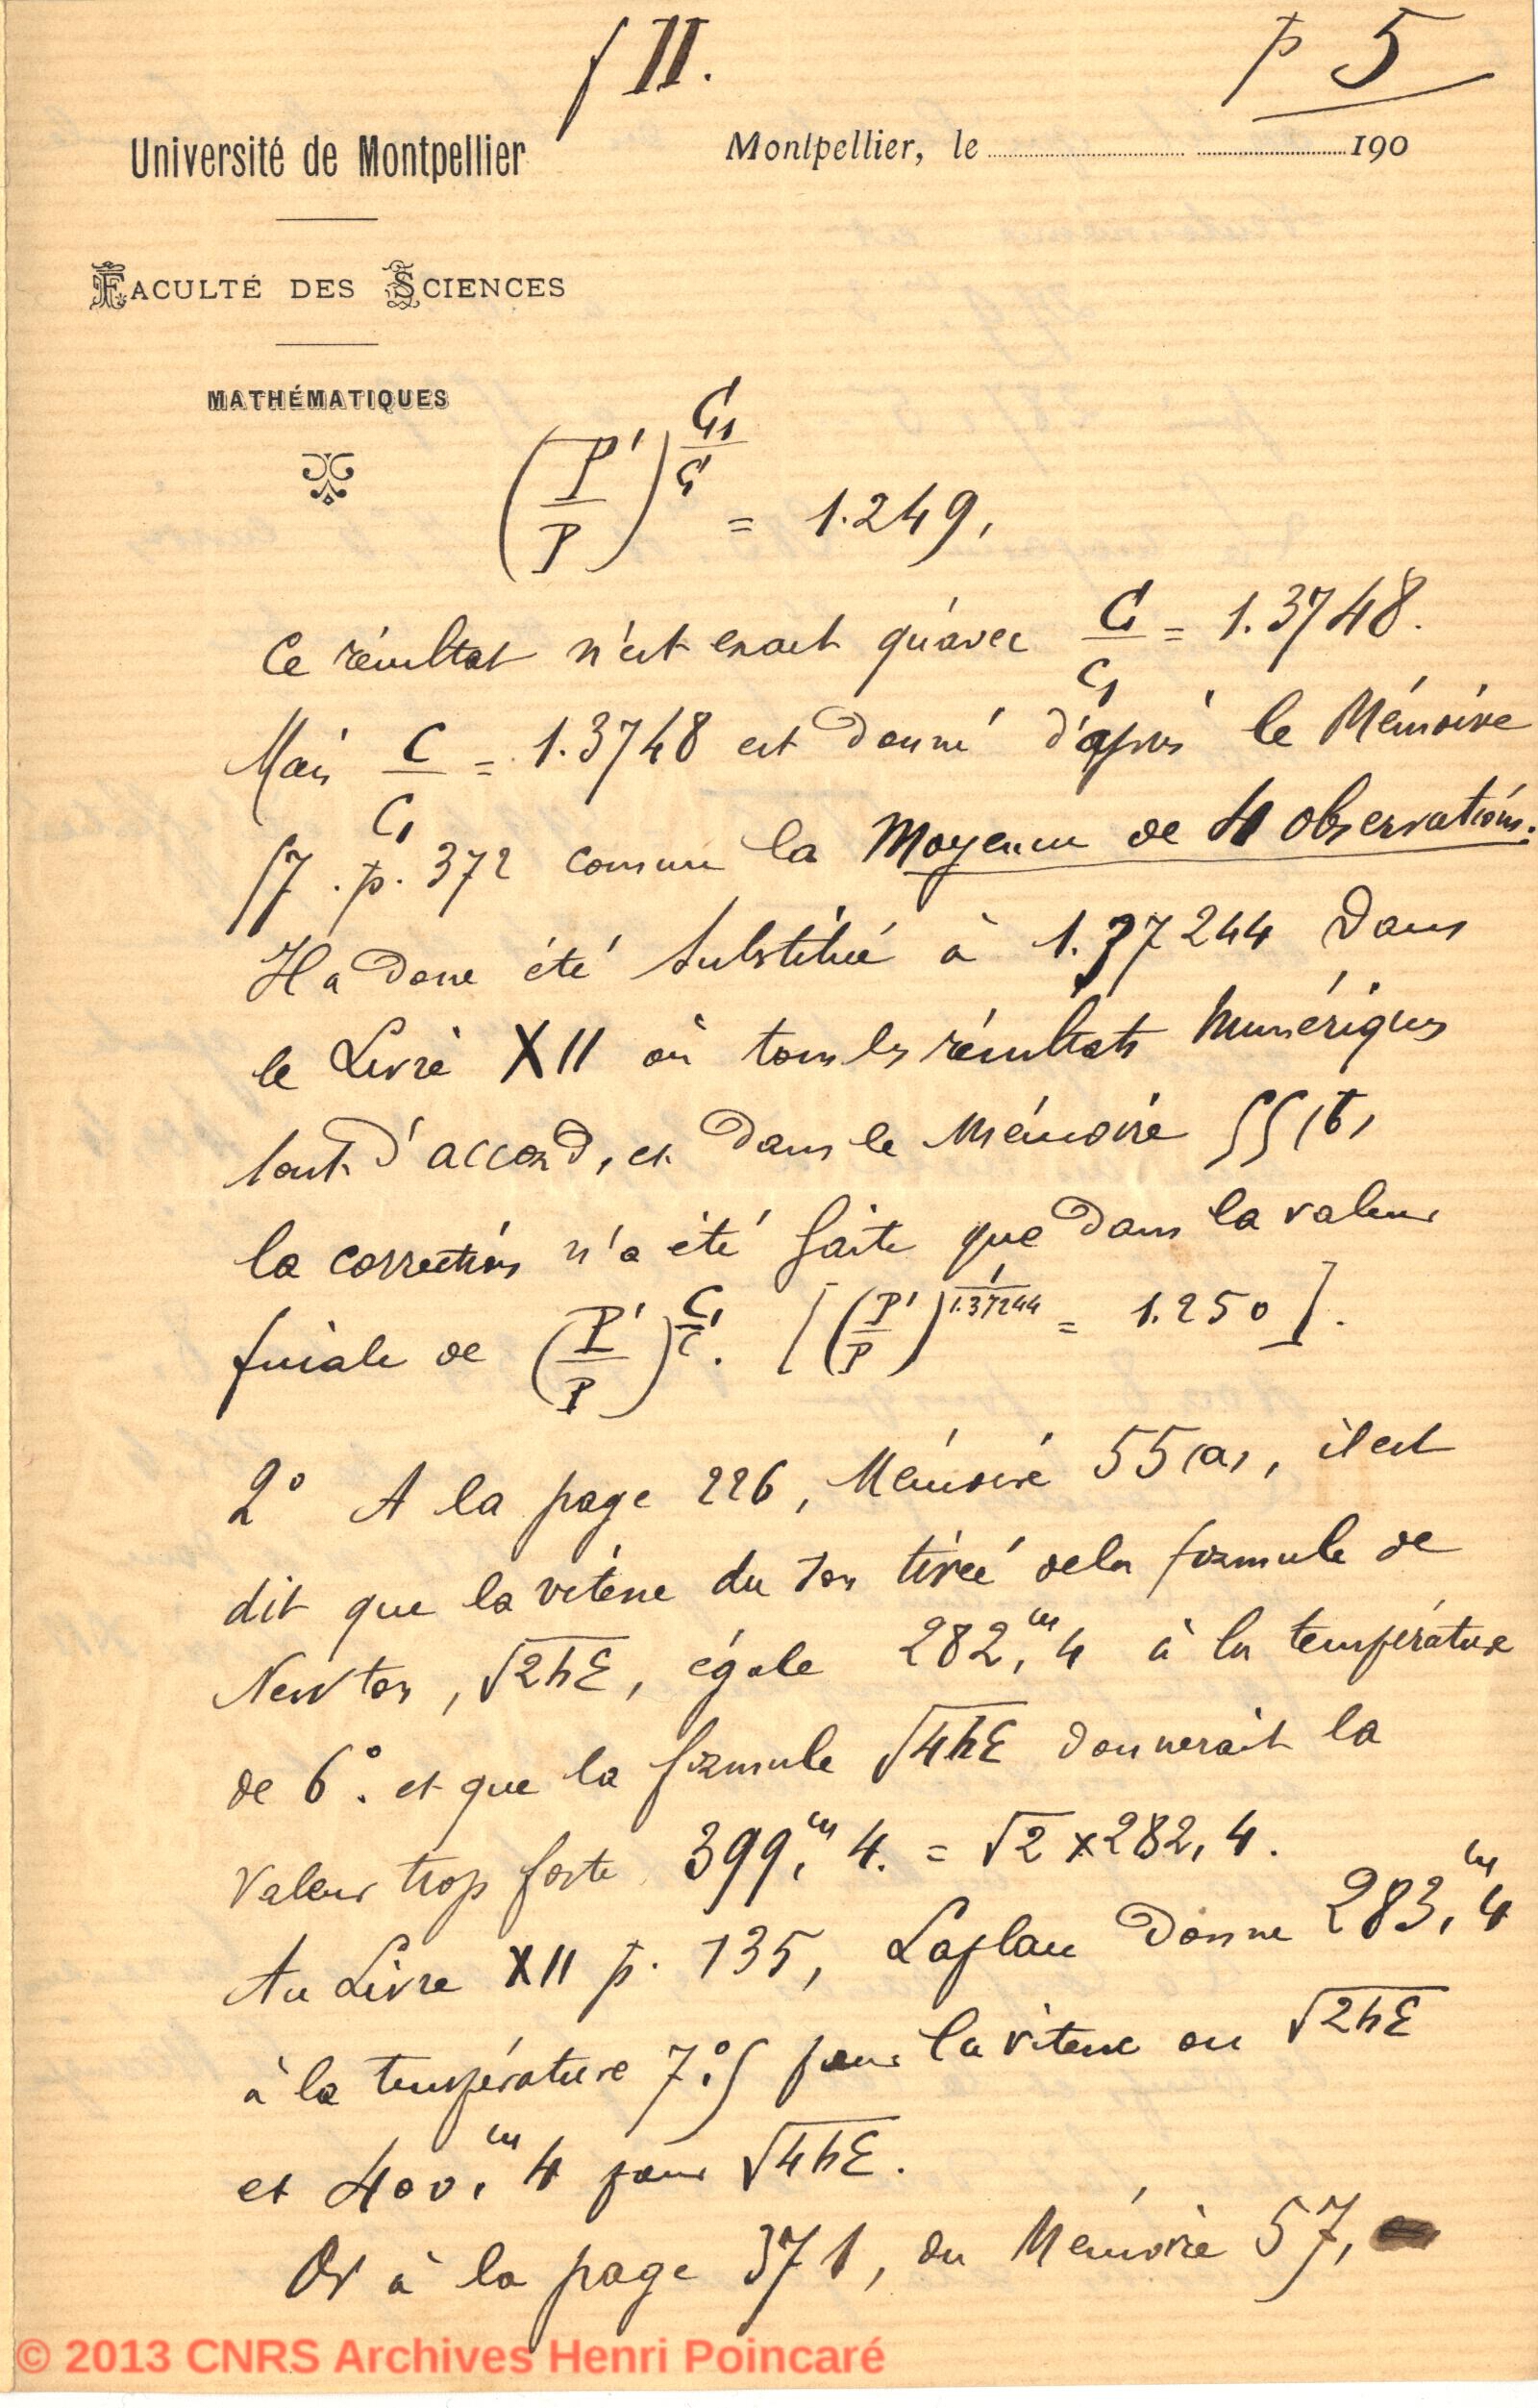 f II.
p 5
Université de Montpellier
Montpellier, le 190
FACULTÉ DES SCIENCES
MATHÉMATIQUES
(P'/P)^(C₁/C) = 1.249,
Ce résultat n'est exact qu'avec C/C₁ = 1.3748.
Mais C/C₁ = 1.3748 est donné d'après le Mémoire
57. p. 372 comme la Moyenne de 4 observations.
Il a donc été substitué à 1.37244 dans
le Livre XII où tous les résultats numériques
sont d'accord, et dans le Mémoire 55(b)
la correction n'a été faite que dans la valeur
finale de (P'/P)^(C₁/C). [(P'/P)^(1/1.37244) = 1.250].
2° A la page 226, Mémoire 55(a), il est
dit que la vitesse du son tirée de la formule de
Newton, √2hE, égale 282,ᵐ4 à la température
de 6°. et que la formule √4hE donnerait la
valeur trop forte 399,ᵐ4. = √2 × 282,4.
Au Livre XII p. 135, Laplace donne 283,ᵐ4
à la température 7°.5 pour la vitesse ou √2hE
et 400,ᵐ4 pour √4hE.
Or à la page 371, du Mémoire 57,
© 2013 CNRS Archives Henri Poincaré